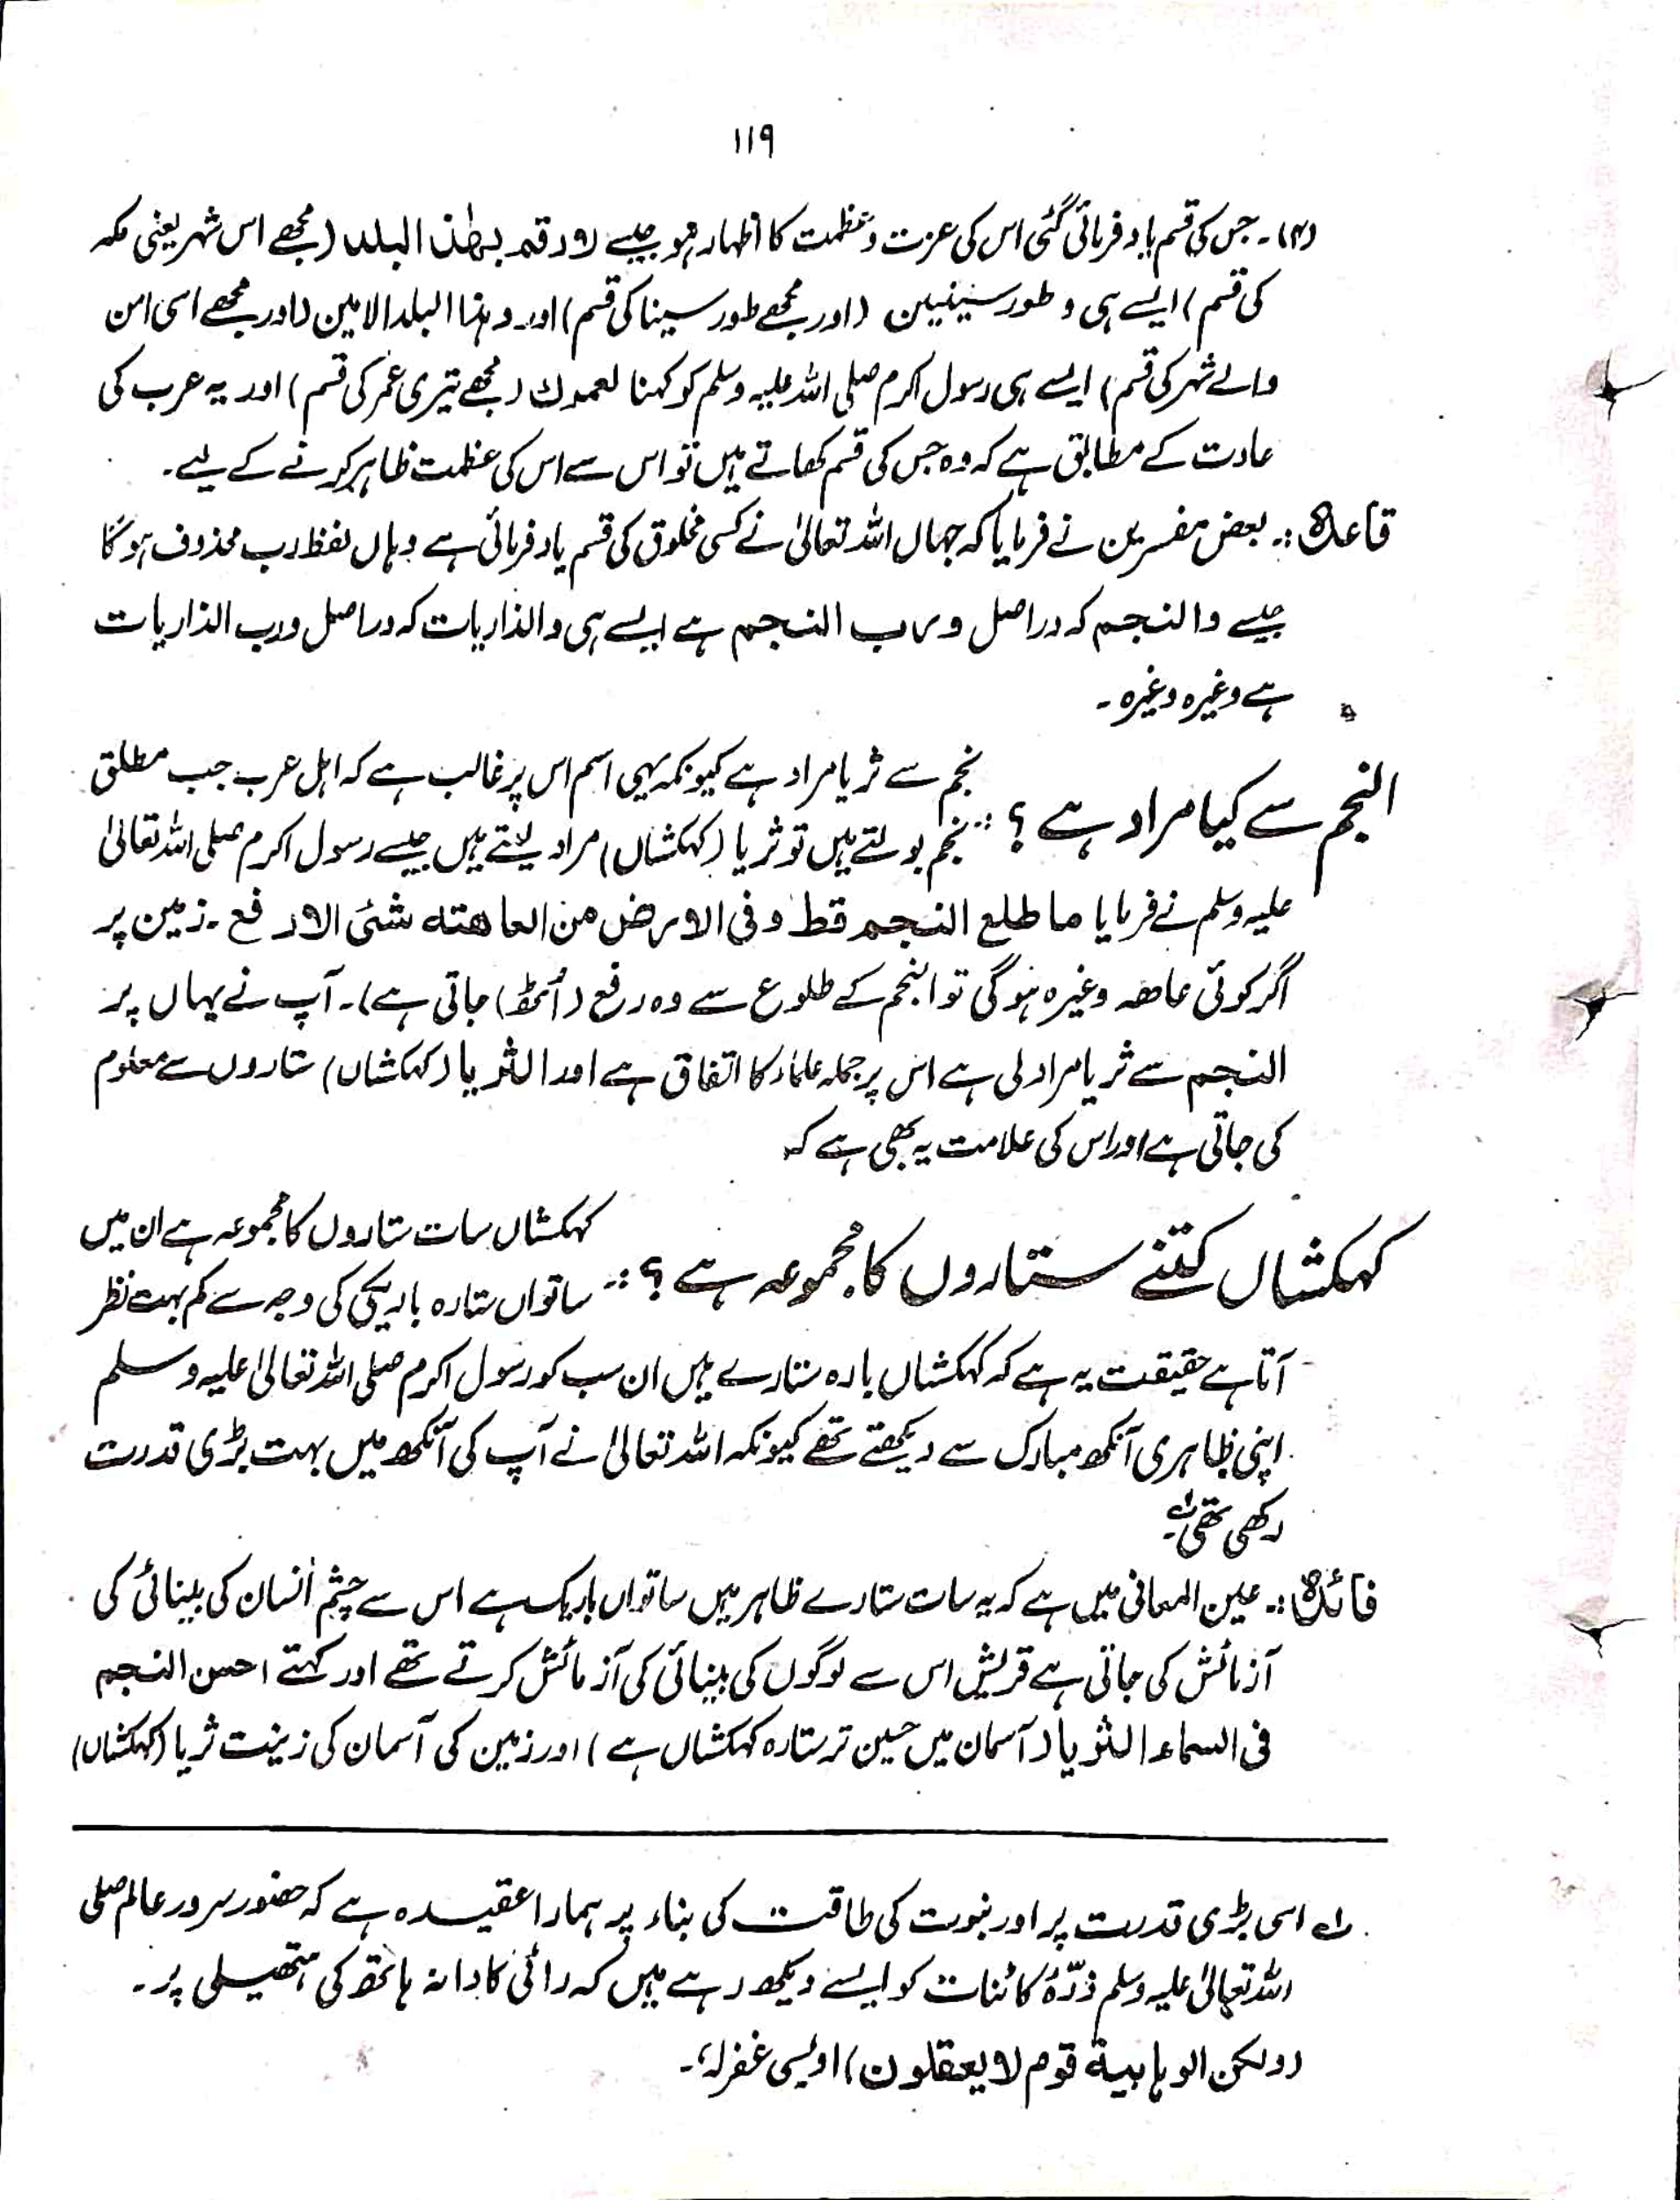 ۱۱۹
(۴)۔ جس کی قسم یاد فرمائی گئی اس کی عزت وعظمت کا اظہار ہو جیسے (و قسم بھٰذا البلد (مجھے اس شہر یعنی مکہ
کی قسم) ایسے ہی و طور سینین (اور مجھے طور سینا کی قسم) اور وہذا البلد الامین (اور مجھے اسی امن
والے شہر کی قسم) ایسے ہی رسول اکرم صلی اللہ علیہ وسلم کو کہنا لعمرك (مجھے تیری عمر کی قسم) اور یہ عرب کی
عادت کے مطابق ہے کہ وہ جس کی قسم کھاتے ہیں تو اس سے اس کی عظمت ظاہر کرنے کے لیے۔
قاعدہ :۔ بعض مفسرین نے فرمایا کہ جہاں اللہ تعالیٰ نے کسی مخلوق کی قسم یاد فرمائی ہے وہاں لفظ رب محذوف ہوگا
جیسے والنجم کہ دراصل ورب النجم ہے ایسے ہی والذاریات کہ دراصل ورب الذاریات
ہے وغیرہ وغیرہ۔
النجم سے کیا مراد ہے ؟ :۔ نجم سے ثریا مراد ہے کیونکہ یہی اسم اس پر غالب ہے کہ اہل عرب جب مطلق
نجم بولتے ہیں تو ثریا (کہکشاں) مراد لیتے ہیں جیسے رسول اکرم صلی اللہ تعالیٰ
علیہ وسلم نے فرمایا ما طلع النجم قط وفی الارض من العاهته شئی الا رفع ۔ زمین پر
اگر کوئی عاهه وغیرہ ہوگی تو النجم کے طلوع سے وہ رفع (اُٹھ) جاتی ہے)۔ آپ نے یہاں پر
النجم سے ثریا مراد لی ہے اس پر جملہ علماء کا اتفاق ہے اور الثریا (کہکشاں) ستاروں سے معلوم
کی جاتی ہے اور اس کی علامت یہ بھی ہے کہ
کہکشاں کتنے ستاروں کا مجموعہ ہے ؟ :۔ کہکشاں سات ستاروں کا مجموعہ ہے ان میں
ساتواں ستارہ باریکی کی وجہ سے کم بہت نظر
آتا ہے حقیقت یہ ہے کہ کہکشاں بارہ ستارے ہیں ان سب کو رسول اکرم صلی اللہ تعالیٰ علیہ وسلم
اپنی ظاہری آنکھ مبارک سے دیکھتے تھے کیونکہ اللہ تعالیٰ نے آپ کی آنکھ میں بہت بڑی قدرت
رکھی تھی۔ ؎۱
فائدہ :۔ عین المعانی میں ہے کہ یہ سات ستارے ظاہر ہیں ساتواں باریک ہے اس سے چشم انسان کی بینائی کی
آزمائش کی جاتی ہے قریش اس سے لوگوں کی بینائی کی آزمائش کرتے تھے اور کہتے احسن النجم
فی السماء الثریا (آسمان میں حسین تر ستارہ کہکشاں ہے) اور زمین کی آسمان کی زینت ثریا (کہکشاں)
؎۱ اسی بڑی قدرت پر اور نبوت کی طاقت کی بناء پر ہمارا عقیدہ ہے کہ حضور سرور عالم صلی
اللہ تعالیٰ علیہ وسلم ذرّہ کائنات کو ایسے دیکھ رہے ہیں کہ رائی کا دانہ ہاتھ کی ہتھیلی پر۔
(ولکن الوہابیة قوم لا یعقلون) اویسی غفرلہٗ۔